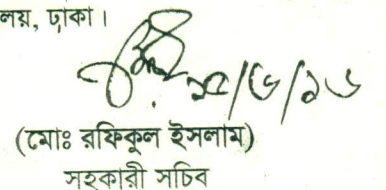 লয়, ঢাকা।
(মোঃ রফিকুল ইসলাম)
সহকারী সচিব